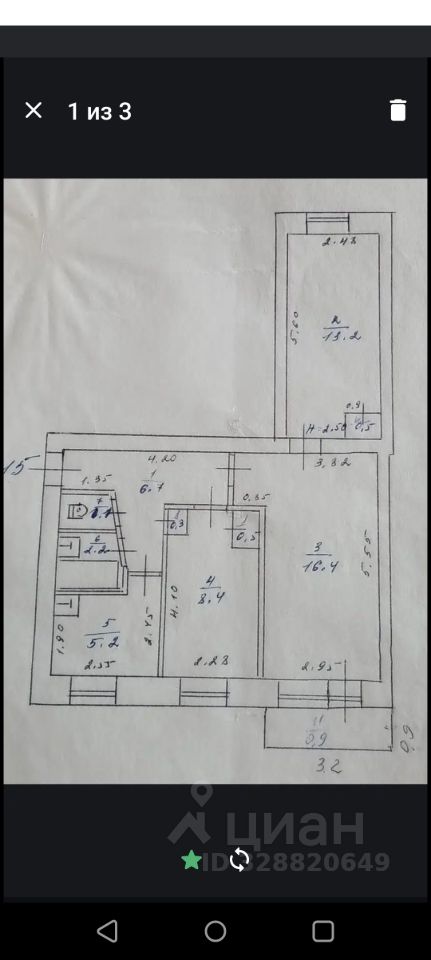 1 из 3
2.48
5.60
2
13.2
0.9
H=2.50
0.5
15
4.20
3.32
1.35
1
6.7
0.35
7
6
2.2
0.3
0.5
3
16.4
5.55
4.10
4
8.4
1.90
5
5.2
2.45
2.55
2.28
2.95
0,9
0,9
3.2
циан
ID 328820649